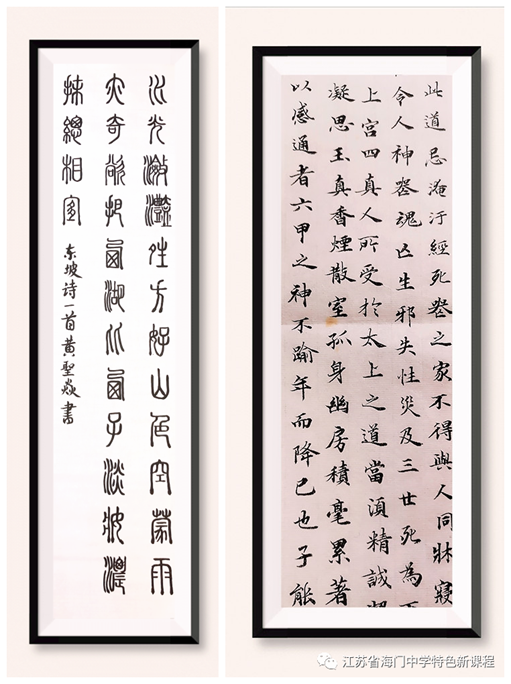 水光瀲灩晴方好山色空蒙雨
亦奇欲把西湖比西子淡妝濃
抹總相宜
东坡诗一首黄聖焱書
此道忌淹汙經死喪之家不得與人同牀寢
令人神喪魂亡生邪失性災及三世死為
上宮四真人所受於太上之道當須精誠
凝思玉真香煙散室孤身幽房積毫累著
以感通者六甲之神不踰年而降己也子能
江苏省海门中学特色新课程